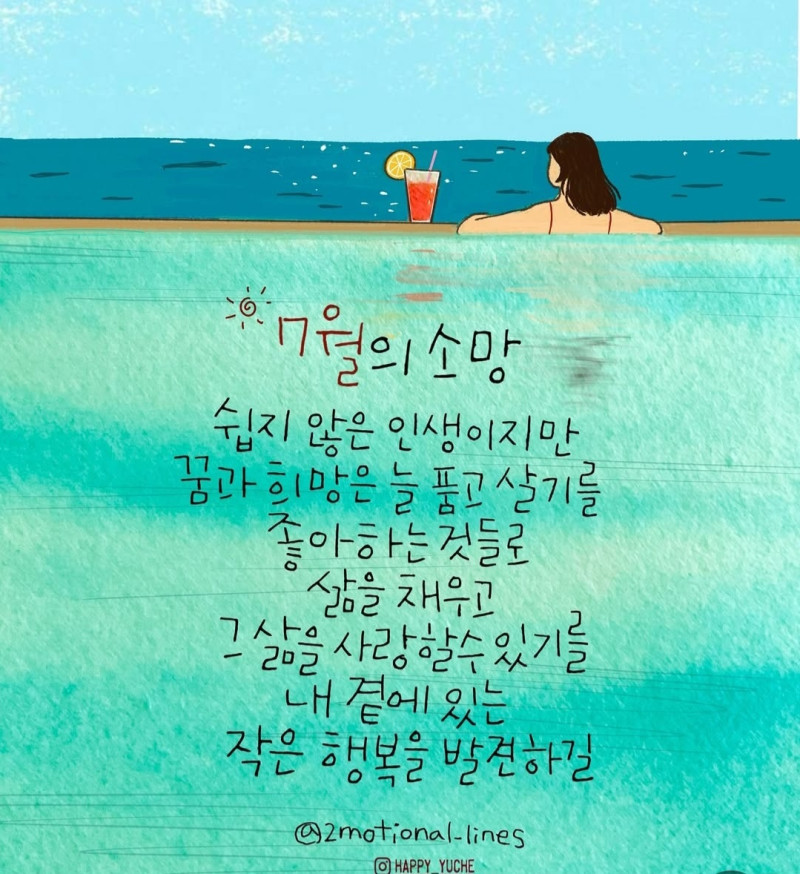 7월의 소망
쉽지 않은 인생이지만
꿈과 희망은 늘 품고 살기를
좋아하는 것들로
삶을 채우고
그 삶을 사랑할수 있기를
내 곁에 있는
작은 행복을 발견하길
@2motional_lines
HAPPY_YUCHE